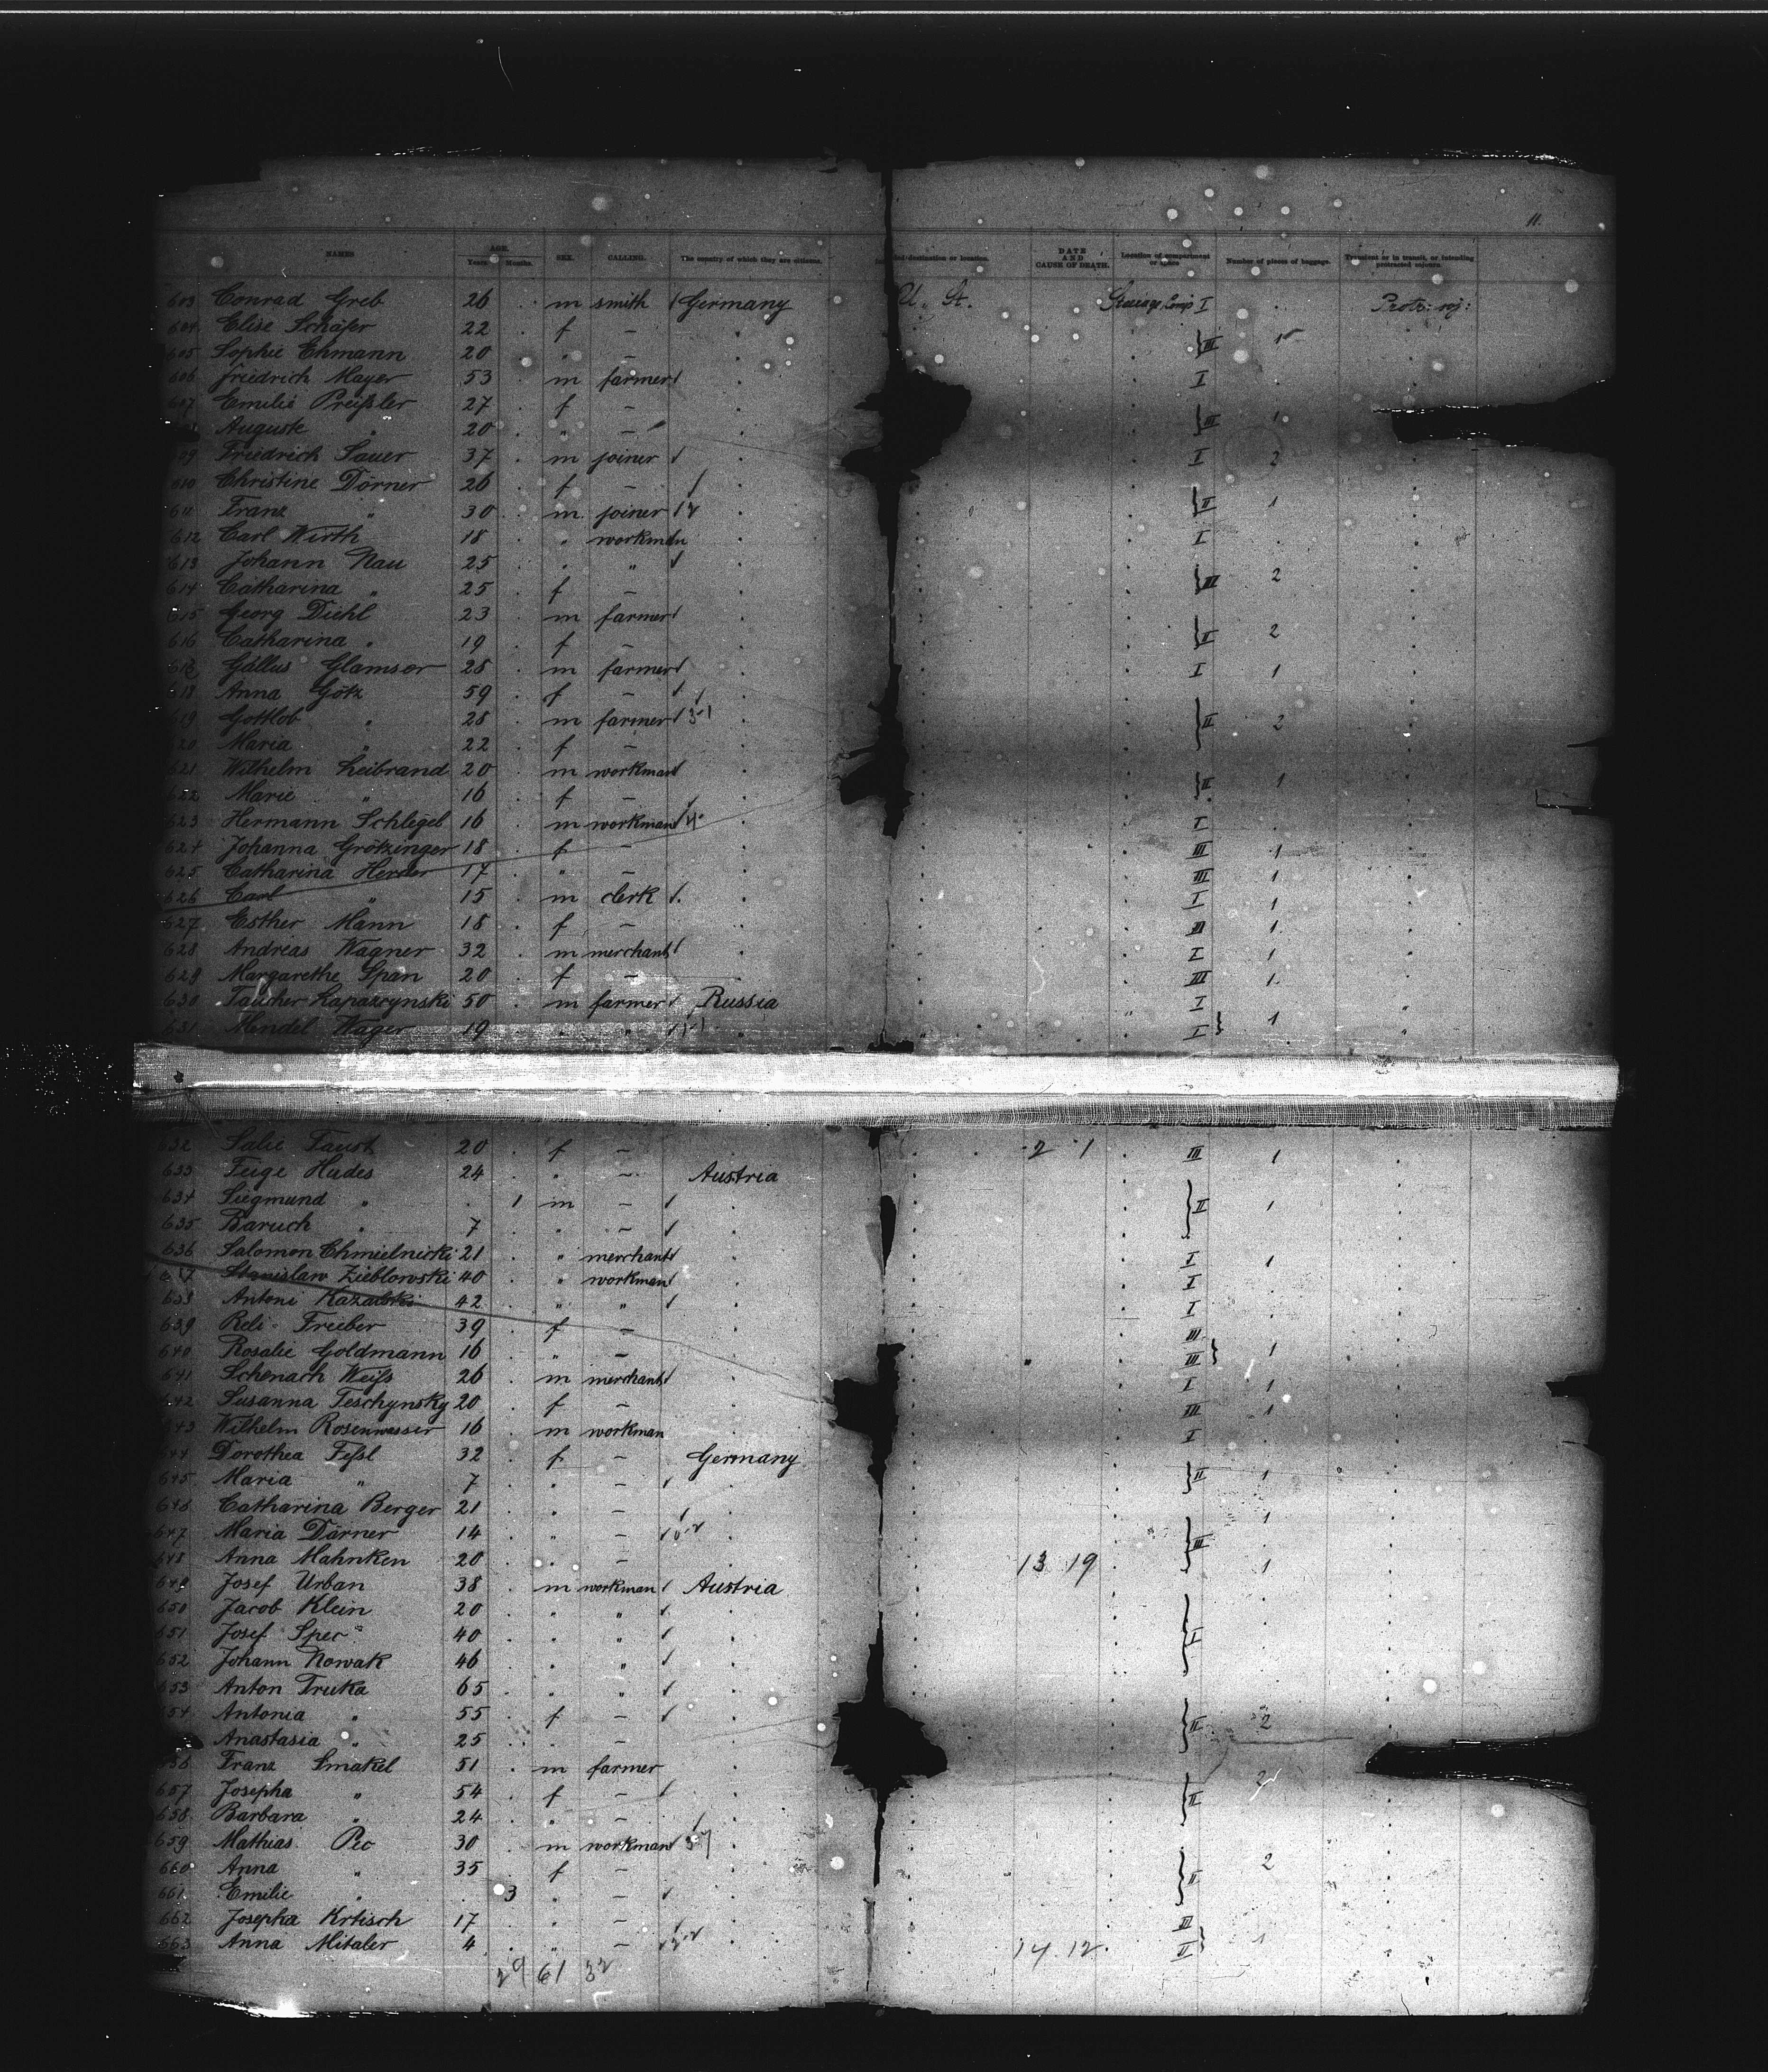 11.
NAMES AGE. Years Months. SEX. CALLING. The country of which they are citizens. destination or location. DATE AND CAUSE OF DEATH. Location of compartment or space Number of pieces of baggage. Transient or in transit, or intending protracted sojourn.
603 Conrad Greb 26 m smith Germany U. St. Steerage Comp I Protr: soj:
604 Elise Schäfer 22 f —
605 Sophie Ehmann 20 " — III 1
606 Friedrich Mayer 53 m farmer I
607 Emilie Preißler 27 f —
Auguste " 20 " — III 1
609 Friedrich Sauer 37 m joiner I 2
610 Christine Dörner 26 f —
611 Franz " 30 m joiner II 1
612 Carl Wirth 18 " workman I
613 Johann Nau 25 " "
614 Catharina " 25 f — III 2
615 Georg Diehl 23 m farmer
616 Catharina " 19 f — II 2
617 Gallus Glamser 28 m farmer I 1
618 Anna Götz 59 f —
619 Gottlob " 28 m farmer 3-1 II 2
620 Maria " 22 f —
621 Wilhelm Leibrand 20 m workman
622 Marie " 16 f — II 1
623 Hermann Schlegel 16 m workman I
624 Johanna Grötzinger 18 f — III 1
625 Catharina Herder 17 " — III 1
626 Carl " 15 m clerk I 1
627 Esther Mann 18 f — III 1
628 Andreas Wagner 32 m merchant I 1
629 Margarethe Span 20 f — III 1
630 Taucher Lapazcynski 50 m farmer Russia I
631 Mendel Wager 19 " " I 1
632 Salie Faust 20 f — 2 1 III 1
633 Feige Hades 24 " — Austria
634 Siegmund " 1 m — II 1
635 Baruch " 7 " —
636 Salomon Chmielnicki 21 " merchant I 1
637 Stanislaw Zieblowski 40 " workman I
638 Antoni Kazalski 42 " " I
639 Reli Frieber 39 f — III
640 Rosalie Goldmann 16 " — III 1
641 Schonach Weiß 26 m merchant I 1
642 Susanna Teschynsky 20 f — III 1
643 Wilhelm Rosenwasser 16 m workman I
644 Dorothea Feßl 32 f — Germany
645 Maria " 7 " — II 1
646 Catharina Berger 21 " — 1
647 Maria Därner 14 " — III
648 Anna Mahnken 20 " — 13 19 1
649 Josef Urban 38 m workman Austria
650 Jacob Klein 20 " "
651 Josef Spec 40 " " I
652 Johann Nowak 46 " "
653 Anton Truka 65 " "
654 Antonia " 55 f — II 2
Anastasia " 25 " —
656 Franz Smakel 51 m farmer
657 Josepha " 54 f — II 2
658 Barbara " 24 " —
659 Mathias Pec 30 m workman
660 Anna " 35 f — II 2
661 Emilie " 3 " —
662 Josepha Krtisch 17 " — III
663 Anna Mitaler 4 " — 14 12 II 1
29 61 32